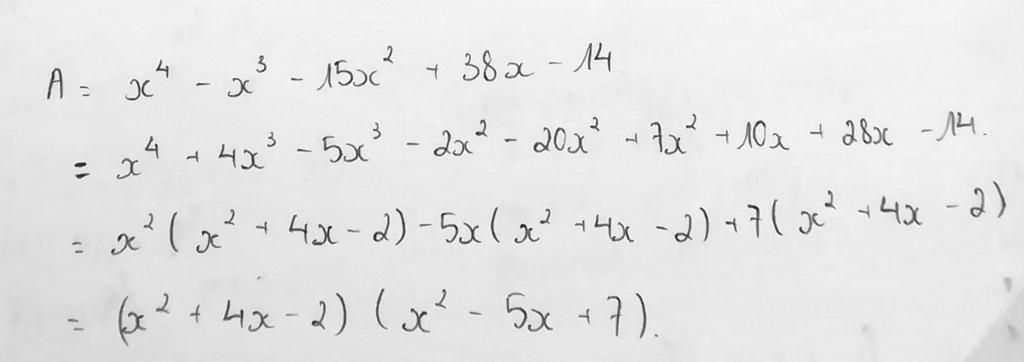 A = x⁴ - x³ - 15x² + 38x - 14
= x⁴ + 4x³ - 5x³ - 2x² - 20x² + 7x² + 10x + 28x - 14.
= x² ( x² + 4x - 2) - 5x ( x² + 4x - 2) + 7 ( x² + 4x - 2)
= (x² + 4x - 2) ( x² - 5x + 7).